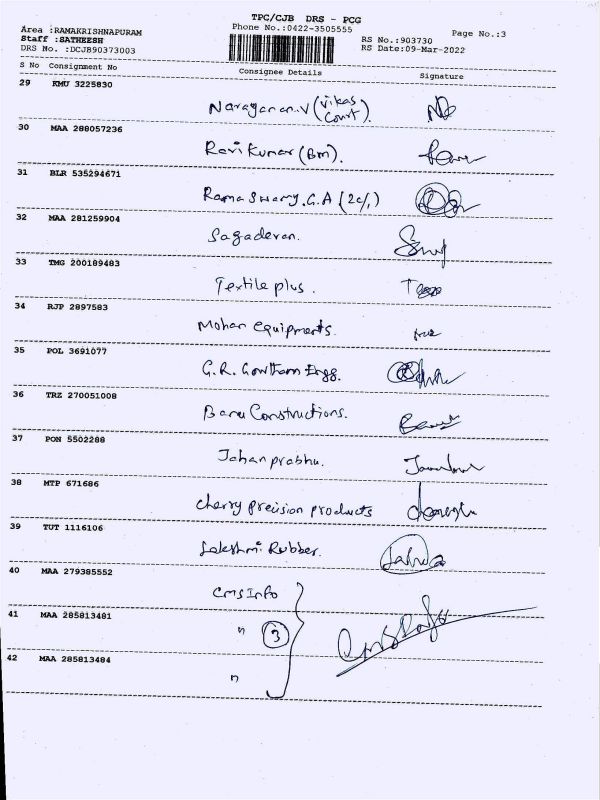 TPC/CJB DRS - PCG
Area :RAMAKRISHNAPURAM Phone No.:0422-3505555 Page No.:3
Staff :SATHEESH RS No.:903730
DRS No. :DCJB90373003 RS Date:09-Mar-2022
S No Consignment No Consignee Details Signature
29 KMU 3225830
Narayanan.V (Vikas Court).
30 MAA 288057236
Ravi Kumar (Bm).
31 BLR 535294671
Rama Swamy.G.A (2c/1)
32 MAA 281259904
Sagadevan.
33 TMG 200189483
Textile plus.
34 RJP 2897583
Mohan equipments.
35 POL 3691077
G.R. Gowtham Engg.
36 TRZ 270051008
Banu Constructions.
37 PON 5502288
Jahan prabhu.
38 MTP 671686
Cherry precision products
39 TUT 1116106
Lakshmi Rubber.
40 MAA 279385552
Cms Info
41 MAA 285813481
" 3
42 MAA 285813484
"